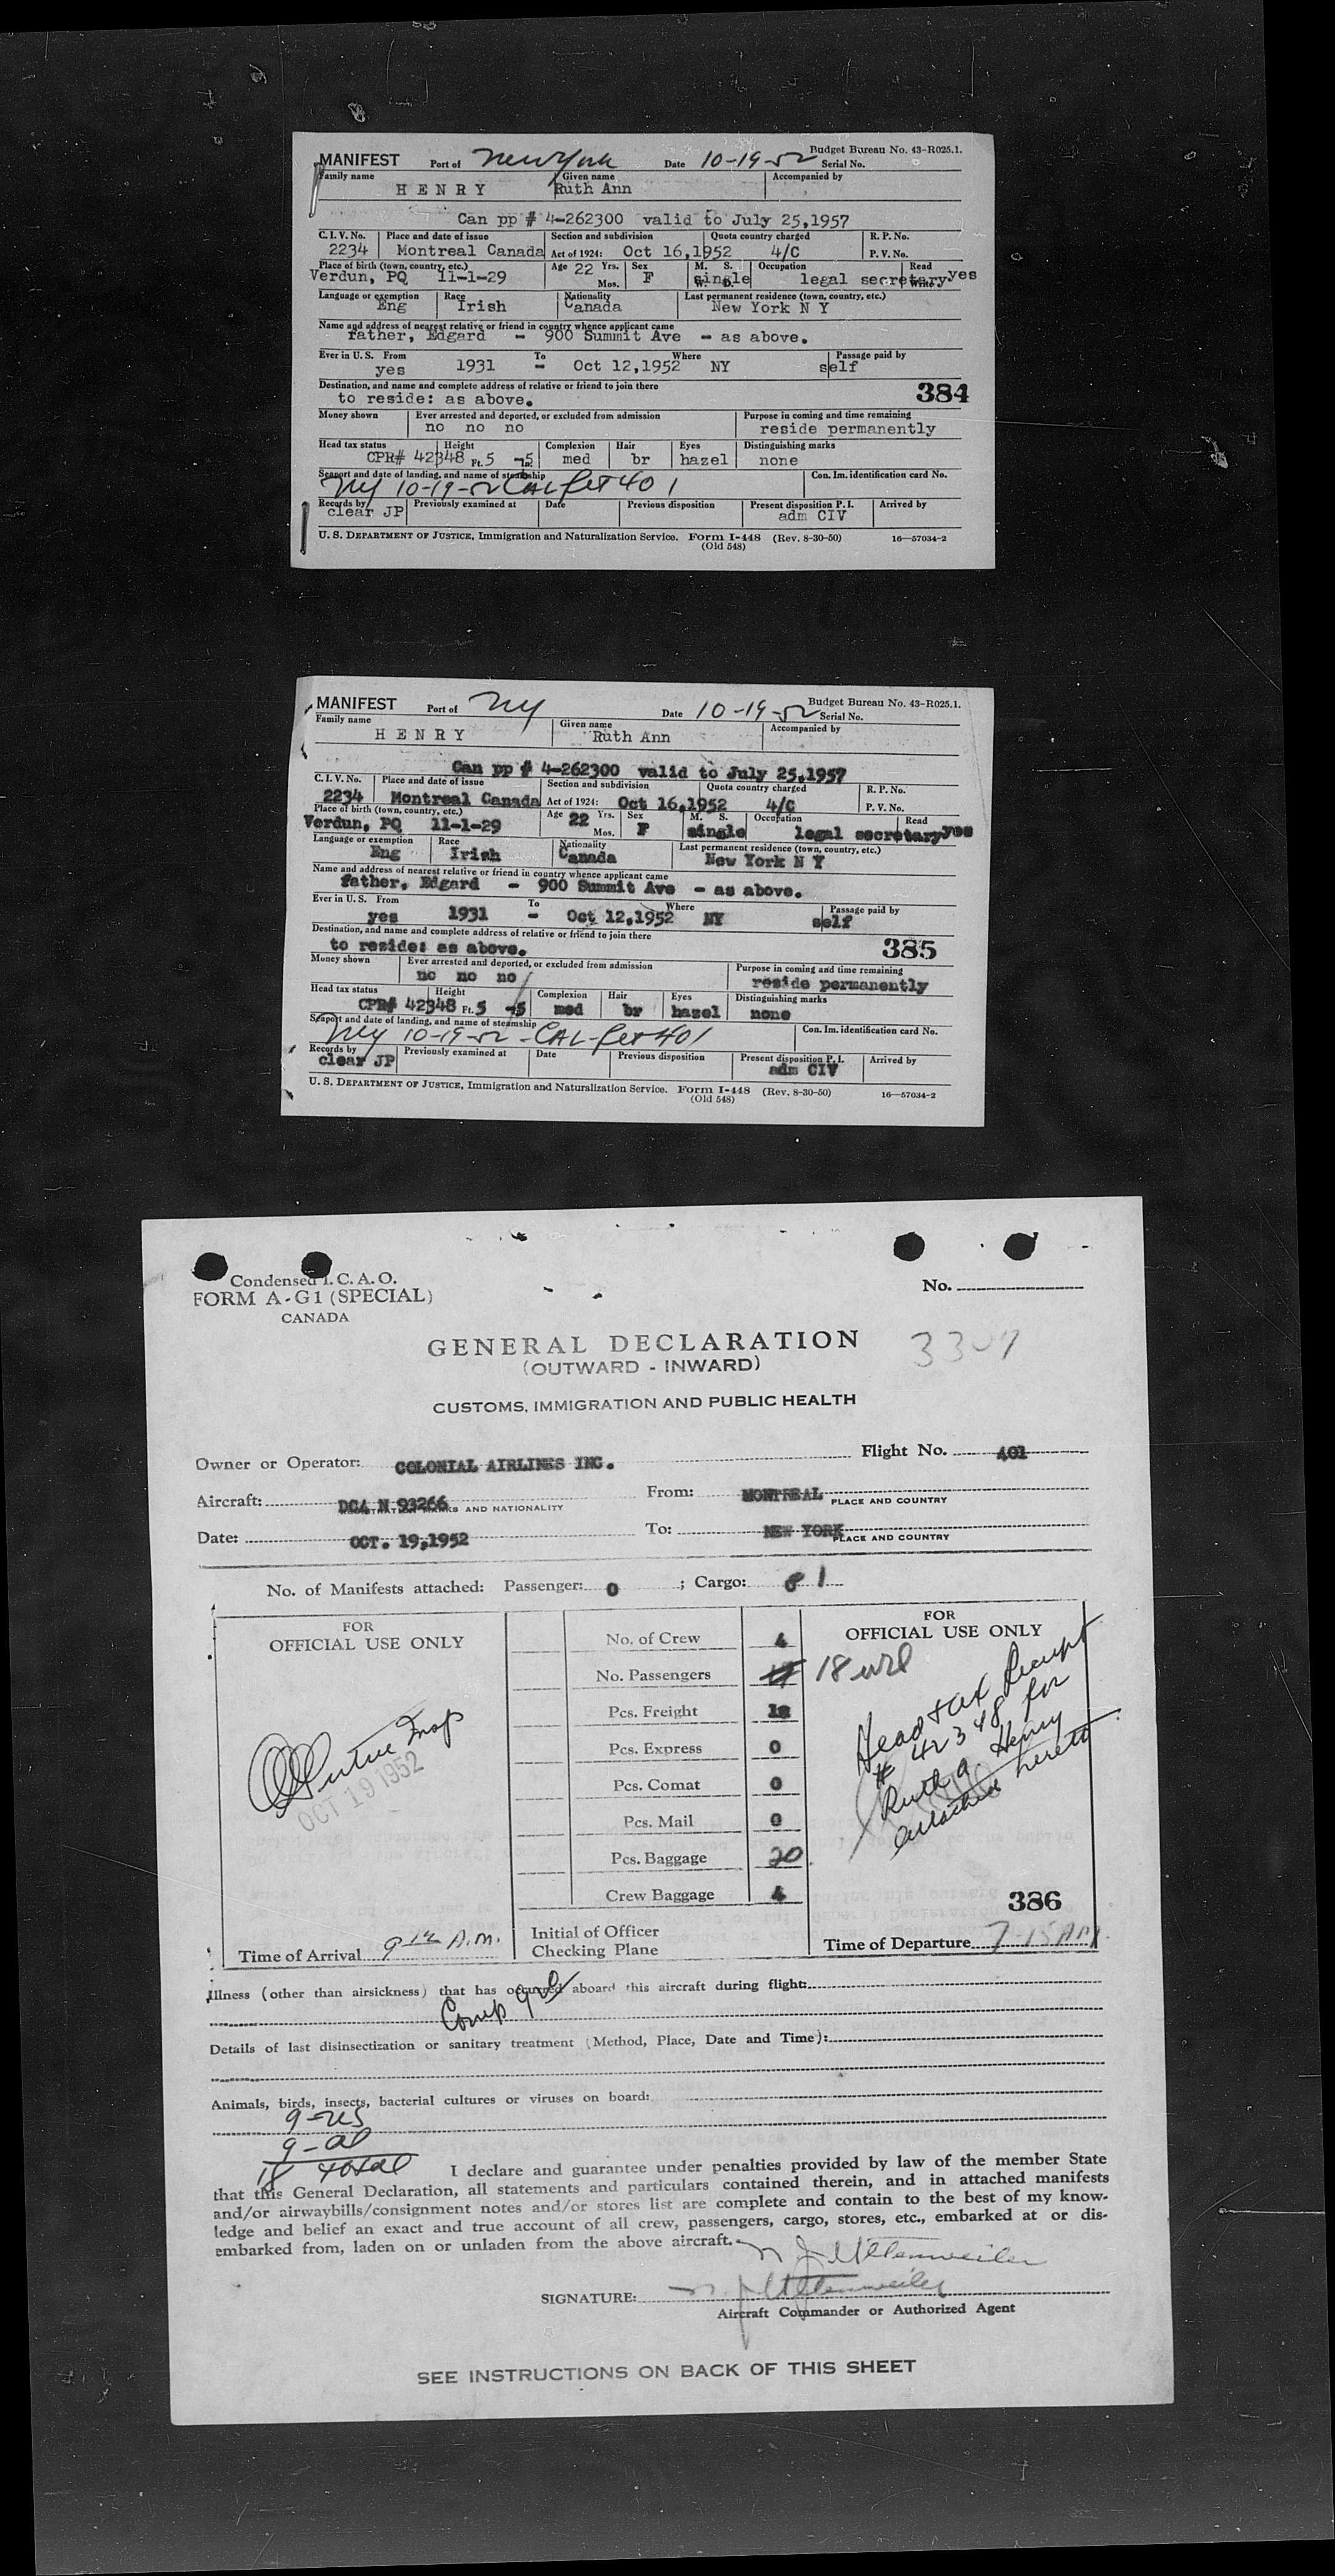 Budget Bureau No. 43-R025.1.
MANIFEST Port of New York Date 10-19-52 Serial No.
Family name Given name Accompanied by
HENRY Ruth Ann
Can pp # 4-262300 valid to July 25,1957
C. I. V. No. Place and date of issue Section and subdivision Quota country charged R. P. No.
2234 Montreal Canada Act of 1924: Oct 16,1952 4/C P. V. No.
Place of birth (town, country, etc.) Age 22 Yrs. Sex M. S. Occupation Read
Verdun, PQ 11-1-29 Mos. F single W. D. legal secretary Write yes
Language or exemption Race Nationality Last permanent residence (town, country, etc.)
Eng Irish Canada New York N Y
Name and address of nearest relative or friend in country whence applicant came
father, Edgard - 900 Summit Ave - as above.
Ever in U. S. From To Where Passage paid by
yes 1931 - Oct 12,1952 NY self
Destination, and name and complete address of relative or friend to join there
to reside: as above. 384
Money shown Ever arrested and deported, or excluded from admission Purpose in coming and time remaining
no no no reside permanently
Head tax status Height Complexion Hair Eyes Distinguishing marks
CPR# 42348 Ft. 5 -5 In. med br hazel none
Seaport and date of landing, and name of steamship Con. Im. identification card No.
NY 10-19-52 CAL flt 401
Records by Previously examined at Date Previous disposition Present disposition P. I. Arrived by
clear JP adm CIV
U. S. DEPARTMENT OF JUSTICE, Immigration and Naturalization Service. Form I-448 (Rev. 8-30-50) 16—57034-2
(Old 548)
Budget Bureau No. 43-R025.1.
MANIFEST Port of NY Date 10-19-52 Serial No.
Family name Given name Accompanied by
HENRY Ruth Ann
Can pp # 4-262300 valid to July 25,1957
C. I. V. No. Place and date of issue Section and subdivision Quota country charged R. P. No.
2234 Montreal Canada Act of 1924: Oct 16,1952 4/C P. V. No.
Place of birth (town, country, etc.) Age 22 Yrs. Sex M. S. Occupation Read
Verdun, PQ 11-1-29 Mos. F single legal secretary yes
Language or exemption Race Nationality Last permanent residence (town, country, etc.)
Eng Irish Canada New York N Y
Name and address of nearest relative or friend in country whence applicant came
father, Edgard - 900 Summit Ave - as above.
Ever in U. S. From To Where Passage paid by
yes 1931 - Oct 12,1952 NY self
Destination, and name and complete address of relative or friend to join there
to reside: as above. 385
Money shown Ever arrested and deported, or excluded from admission Purpose in coming and time remaining
no no no reside permanently
Head tax status Height Complexion Hair Eyes Distinguishing marks
CPR# 42348 Ft. 5 -5 med br hazel none
Seaport and date of landing, and name of steamship Con. Im. identification card No.
NY 10-19-52 - CAL - flt 401
Records by Previously examined at Date Previous disposition Present disposition P. I. Arrived by
clear JP adm CIV
U. S. DEPARTMENT OF JUSTICE, Immigration and Naturalization Service. Form I-448 (Rev. 8-30-50) 16—57034-2
(Old 548)
Condensed I. C. A. O. No.
FORM A-G1 (SPECIAL)
CANADA
GENERAL DECLARATION
(OUTWARD - INWARD)
CUSTOMS, IMMIGRATION AND PUBLIC HEALTH
Owner or Operator: COLONIAL AIRLINES INC. Flight No. 401
Aircraft: DC4 N 93266 MARKS AND NATIONALITY From: MONTREAL PLACE AND COUNTRY
Date: OCT. 19,1952 To: NEW YORK PLACE AND COUNTRY
No. of Manifests attached: Passenger: 0 ; Cargo: 1
FOR FOR
OFFICIAL USE ONLY OFFICIAL USE ONLY
No. of Crew 4
No. Passengers 18
Pcs. Freight
Pcs. Express 0
Pcs. Comat 0
Pcs. Mail 0
Pcs. Baggage 20
Crew Baggage 4
OCT 19 1952
Head tax Receipt
# 42348 for
Ruth A Henry
attached hereto
386
Initial of Officer
Checking Plane
Time of Arrival 9 12 A.M. Time of Departure 7-15 AM
Illness (other than airsickness) that has occurred aboard this aircraft during flight:
Details of last disinsectization or sanitary treatment (Method, Place, Date and Time):
Animals, birds, insects, bacterial cultures or viruses on board:
9-US
9-al
18 total
I declare and guarantee under penalties provided by law of the member State
that this General Declaration, all statements and particulars contained therein, and in attached manifests
and/or airwaybills/consignment notes and/or stores list are complete and contain to the best of my know-
ledge and belief an exact and true account of all crew, passengers, cargo, stores, etc., embarked at or dis-
embarked from, laden on or unladen from the above aircraft.
SIGNATURE:
Aircraft Commander or Authorized Agent
SEE INSTRUCTIONS ON BACK OF THIS SHEET